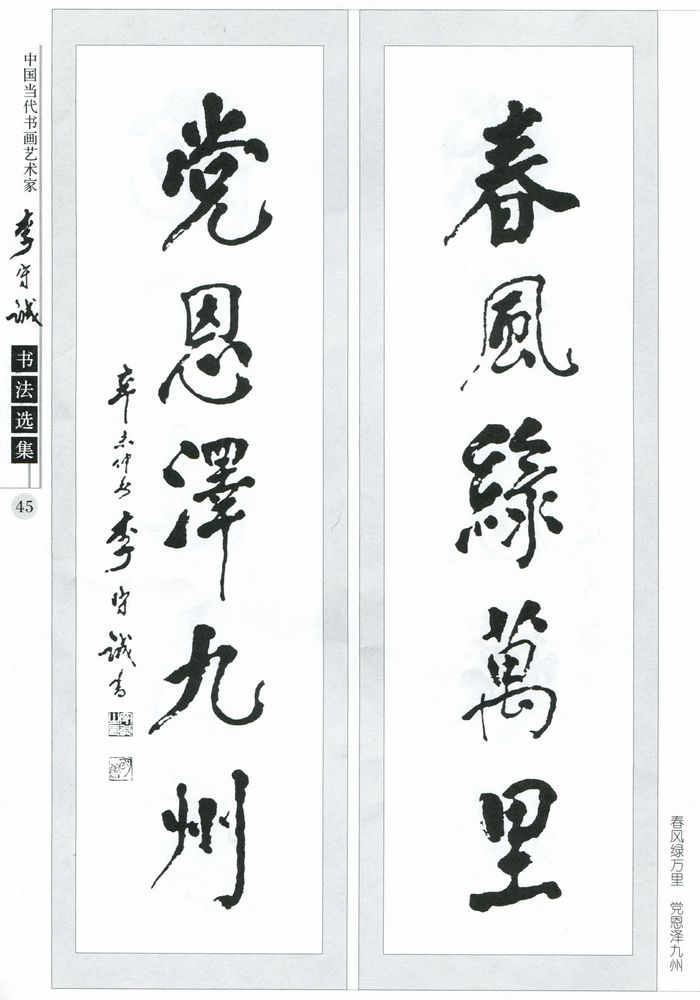 中国当代书画艺术家
李守诚
书法选集
45
春風綠萬里
党恩澤九州
辛未仲冬李守诚书
春风绿万里 党恩泽九州